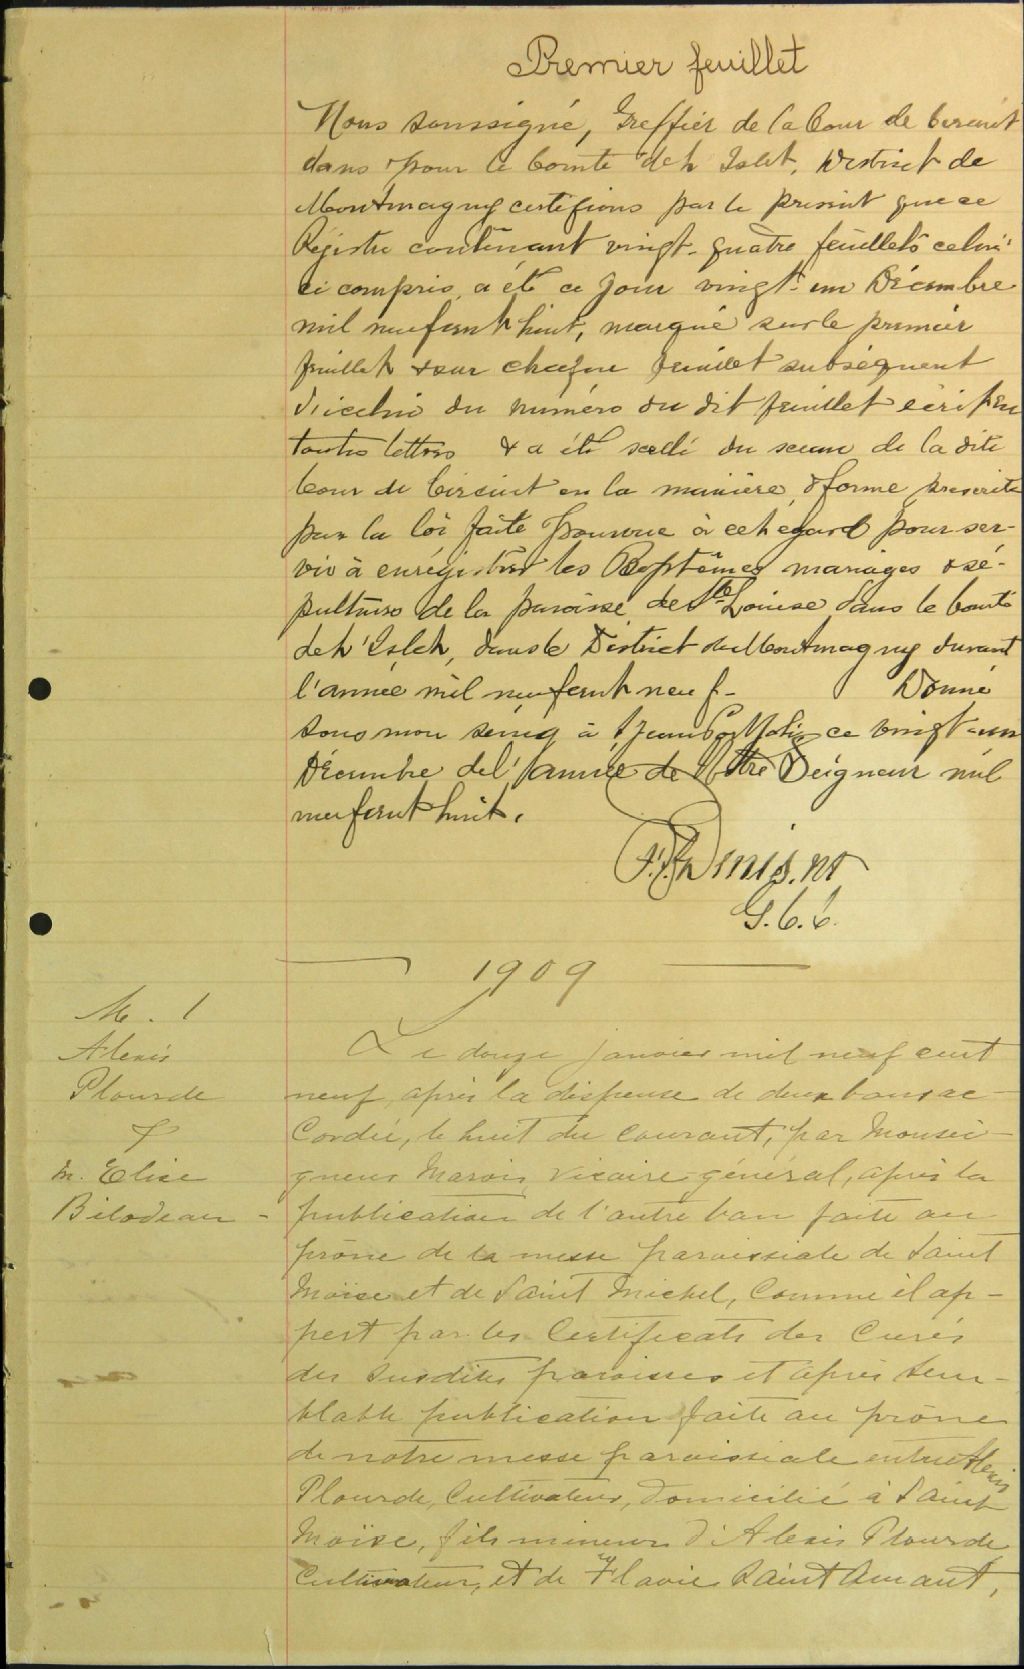 Premier feuillet
Nous soussigné, Greffier de la Cour de Circuit
dans & pour le Comté de L'Islet, District de
Montmagny certifions par le présent que ce
Régistre contenant vingt-quatre feuillets celui-
ci compris, a été ce jour vingt-un Décembre
mil neuf cent huit, marqué sur le premier
feuillet & sur chaque feuillet subséquent
d'icelui du numéro du dit feuillet écrit en
toutes lettres & a été scellé du sceau de la dite
Cour de Circuit en la manière & forme prescrite
par la loi faite & pourvue à cet égard pour ser-
vir à enrégistrer les Baptêmes mariages & sé-
pultures de la paroisse de Ste Louise dans le Comté
de L'Islet, dans le District de Montmagny durant
l'année mil neuf cent neuf - Donné
sous mon seing à St Jean Port Joli ce vingt-un
Décembre de l'année de Notre Seigneur mil
neuf cent huit.
Denis, nt
G.C.C.
1909
M. 1
Alexis
Plourde
&
M. Elise
Bilodeau -
Le douze janvier mil neuf cent
neuf, après la dispense de deux bans ac-
cordée, le huit du courant, par Monsei-
gneur Marois, vicaire-général, après la
publication de l'autre ban faite au
prône de la messe paroissiale de Saint
Moïse et de Saint Michel, comme il ap-
pert par les certificats des curés
des susdites paroisses et après sem-
blable publication faite au prône
de notre messe paroissiale entre Alexis
Plourde, Cultivateur, domicilié à Saint
Moïse, fils mineur d'Alexis Plourde
Cultivateur, et de Flavie Saint Amant,